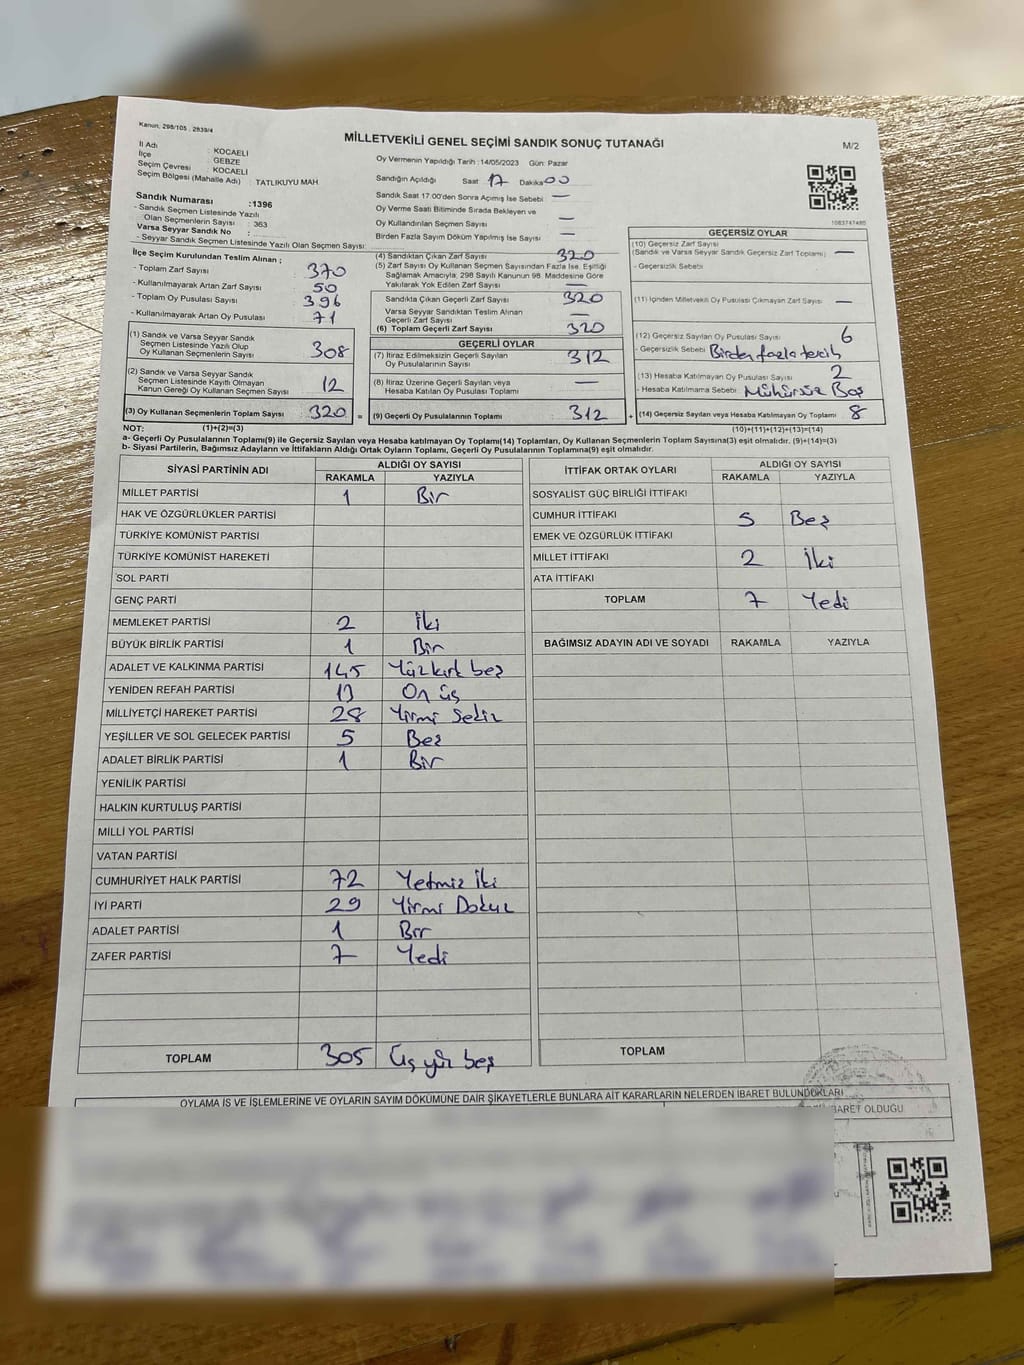 Kanun; 298/105 , 2839/4
MİLLETVEKİLİ GENEL SEÇİMİ SANDIK SONUÇ TUTANAĞI
M/2
İl Adı : KOCAELİ
İlçe : GEBZE
Seçim Çevresi : KOCAELİ
Seçim Bölgesi (Mahalle Adı) : TATLIKUYU MAH
Sandık Numarası :1396
- Sandık Seçmen Listesinde Yazılı
Olan Seçmenlerin Sayısı : 363
Varsa Seyyar Sandık No :
- Seyyar Sandık Seçmen Listesinde Yazılı Olan Seçmen Sayısı:
Oy Vermenin Yapıldığı Tarih :14/05/2023 Gün: Pazar
Sandığın Açıldığı Saat 17 Dakika 00
Sandık Saat 17:00'den Sonra Açımış İse Sebebi —
Oy Verme Saati Bitiminde Sırada Bekleyen ve
Oy Kullandırılan Seçmen Sayısı —
Birden Fazla Sayım Döküm Yapılmış İse Sayısı —
1083747485
İlçe Seçim Kurulundan Teslim Alınan ;
- Toplam Zarf Sayısı : 370
- Kullanılmayarak Artan Zarf Sayısı : 50
- Toplam Oy Pusulası Sayısı : 396
- Kullanılmayarak Artan Oy Pusulası : 71
(1) Sandık ve Varsa Seyyar Sandık
Seçmen Listesinde Yazılı Olup
Oy Kullanan Seçmenlerin Sayısı 308
(2) Sandık ve Varsa Seyyar Sandık
Seçmen Listesinde Kayıtlı Olmayan
Kanun Gereği Oy Kullanan Seçmen Sayısı 12
(3) Oy Kullanan Seçmenlerin Toplam Sayısı 320 =
(4) Sandıktan Çıkan Zarf Sayısı 320
(5) Zarf Sayısı Oy Kullanan Seçmen Sayısından Fazla İse, Eşitliği
Sağlamak Amacıyla; 298 Sayılı Kanunun 98. Maddesine Göre
Yakılarak Yok Edilen Zarf Sayısı —
Sandıkta Çıkan Geçerli Zarf Sayısı 320
Varsa Seyyar Sandıktan Teslim Alınan
Geçerli Zarf Sayısı —
(6) Toplam Geçerli Zarf Sayısı 320
GEÇERLİ OYLAR
(7) İtiraz Edilmeksizin Geçerli Sayılan
Oy Pusulalarının Sayısı 312
(8) İtiraz Üzerine Geçerli Sayılan veya
Hesaba Katılan Oy Pusulası Toplamı —
(9) Geçerli Oy Pusulalarının Toplamı 312 +
GEÇERSİZ OYLAR
(10) Geçersiz Zarf Sayısı
(Sandık ve Varsa Seyyar Sandık Geçersiz Zarf Toplamı) —
- Geçersizlik Sebebi
(11) İçinden Milletvekili Oy Pusulası Çıkmayan Zarf Sayısı —
(12) Geçersiz Sayılan Oy Pusulası Sayısı 6
- Geçersizlik Sebebi Birden fazla tercih
(13) Hesaba Katılmayan Oy Pusulası Sayısı 2
- Hesaba Katılmama Sebebi Mühürsüz Boş
(14) Geçersiz Sayılan veya Hesaba Katılmayan Oy Toplamı 8
NOT: (1)+(2)=(3) (10)+(11)+(12)+(13)=(14)
a- Geçerli Oy Pusulalarının Toplamı(9) ile Geçersiz Sayılan veya Hesaba katılmayan Oy Toplamı(14) Toplamları, Oy Kullanan Seçmenlerin Toplam Sayısına(3) eşit olmalıdır. (9)+(14)=(3)
b- Siyasi Partilerin, Bağımsız Adayların ve İttifakların Aldığı Ortak Oyların Toplamı, Geçerli Oy Pusulalarının Toplamına(9) eşit olmalıdır.
SİYASİ PARTİNİN ADI ALDIĞI OY SAYISI
RAKAMLA YAZIYLA
MİLLET PARTİSİ 1 Bir
HAK VE ÖZGÜRLÜKLER PARTİSİ
TÜRKİYE KOMÜNİST PARTİSİ
TÜRKİYE KOMÜNİST HAREKETİ
SOL PARTİ
GENÇ PARTİ
MEMLEKET PARTİSİ 2 İki
BÜYÜK BİRLİK PARTİSİ 1 Bir
ADALET VE KALKINMA PARTİSİ 145 Yüzkırk beş
YENİDEN REFAH PARTİSİ 13 On üş
MİLLİYETÇİ HAREKET PARTİSİ 28 Yirmi Sekiz
YEŞİLLER VE SOL GELECEK PARTİSİ 5 Beş
ADALET BİRLİK PARTİSİ 1 Bir
YENİLİK PARTİSİ
HALKIN KURTULUŞ PARTİSİ
MİLLİ YOL PARTİSİ
VATAN PARTİSİ
CUMHURİYET HALK PARTİSİ 72 Yetmiş iki
İYİ PARTİ 29 Yirmi Dokuz
ADALET PARTİSİ 1 Bir
ZAFER PARTİSİ 7 Yedi
TOPLAM 305 Üş yüz beş
İTTİFAK ORTAK OYLARI ALDIĞI OY SAYISI
RAKAMLA YAZIYLA
SOSYALİST GÜÇ BİRLİĞİ İTTİFAKI
CUMHUR İTTİFAKI 5 Beş
EMEK VE ÖZGÜRLÜK İTTİFAKI
MİLLET İTTİFAKI 2 İki
ATA İTTİFAKI
TOPLAM 7 Yedi
BAĞIMSIZ ADAYIN ADI VE SOYADI RAKAMLA YAZIYLA
TOPLAM
OYLAMA İŞ VE İŞLEMLERİNE VE OYLARIN SAYIM DÖKÜMÜNE DAİR ŞİKAYETLERLE BUNLARA AİT KARARLARIN NELERDEN İBARET BULUNDUKLARI
İBARET OLDUĞU